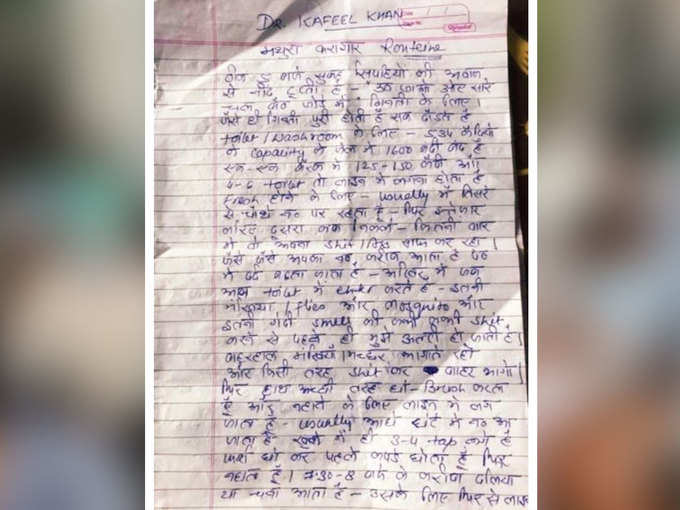 DR. KAFEEL KHAN
मथुरा कारागार Routeine
ठीक 5 बजे सुबह सिपाहियों की आवाज
से नींद टूटती है - उठ जाओ उठो सारे
चल बंद जोड़े में गिनती के लिए।
जैसे ही गिनती पुरी होती है सब दौड़ते है
toilet / washroom के लिए - 534 कैदियों
के capacity के जेल में 1600 बंदी बंद है
एक-एक बैरक में 125-150 कैदी और
4-6 toilet तो लाइन में लगना होता है
fresh होने के लिए - usually मैं तिसरे
से चौथे नं० पर रहता हूँ - फिर इन्तेजार
करिए दूसरा कब निकले - जितनी बार
में वो अपना shit / piss साफ कर रहा।
जैसे जैसे आपका नं० करीब आता है पेट
मे दर्द बढ़ता जाता है - आखिर में जब
आप toilet में enter करते है - इतनी
मक्खियाँ / flies और mosquito और
इतनी गंदी smell की कभी कभी shit
करने से पहले ही मुझे उलटी हो जाती है।
बाहरहाल मक्खियाँ / मच्छर भगाते रहो
और किसी तरह shit कर बाहर भागो।
फिर हाथ अच्छी तरह धो - Brush करता
हूँ और नहाने के लिए लाइन मे लग
जाता हूँ - usually आधे घंटे में नं० आ
जाता है खुले में ही 3-4 tap लगे है
फर्श धो कर पहले कपड़े धोता हूँ फिर
नहाता हूँ। 7:30-8 बजे के करीब दलिया
या चना आता है - उसके लिए फिर से लाइन